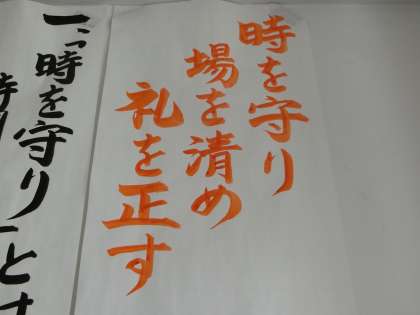 時を守り
場を清め
礼を正す
一つ時を守り